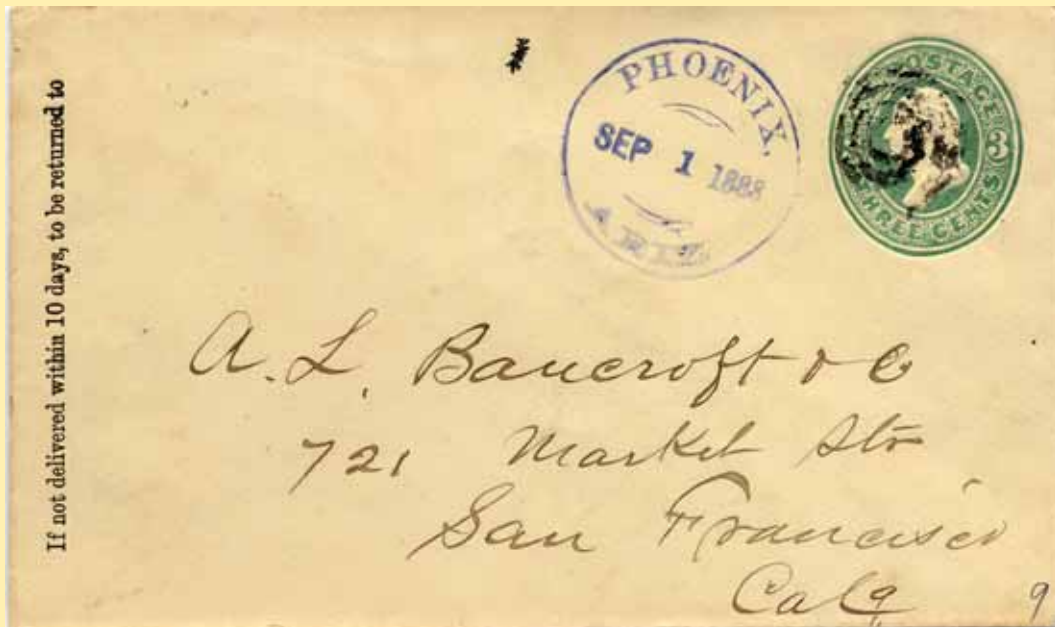 If not delivered within 10 days, to be returned to
PHOENIX.
SEP 1 1888
ARIZ.
POSTAGE
3
THREE CENTS
A. L. Bancroft & Co
721 Market Str
San Francisco
Cala
9